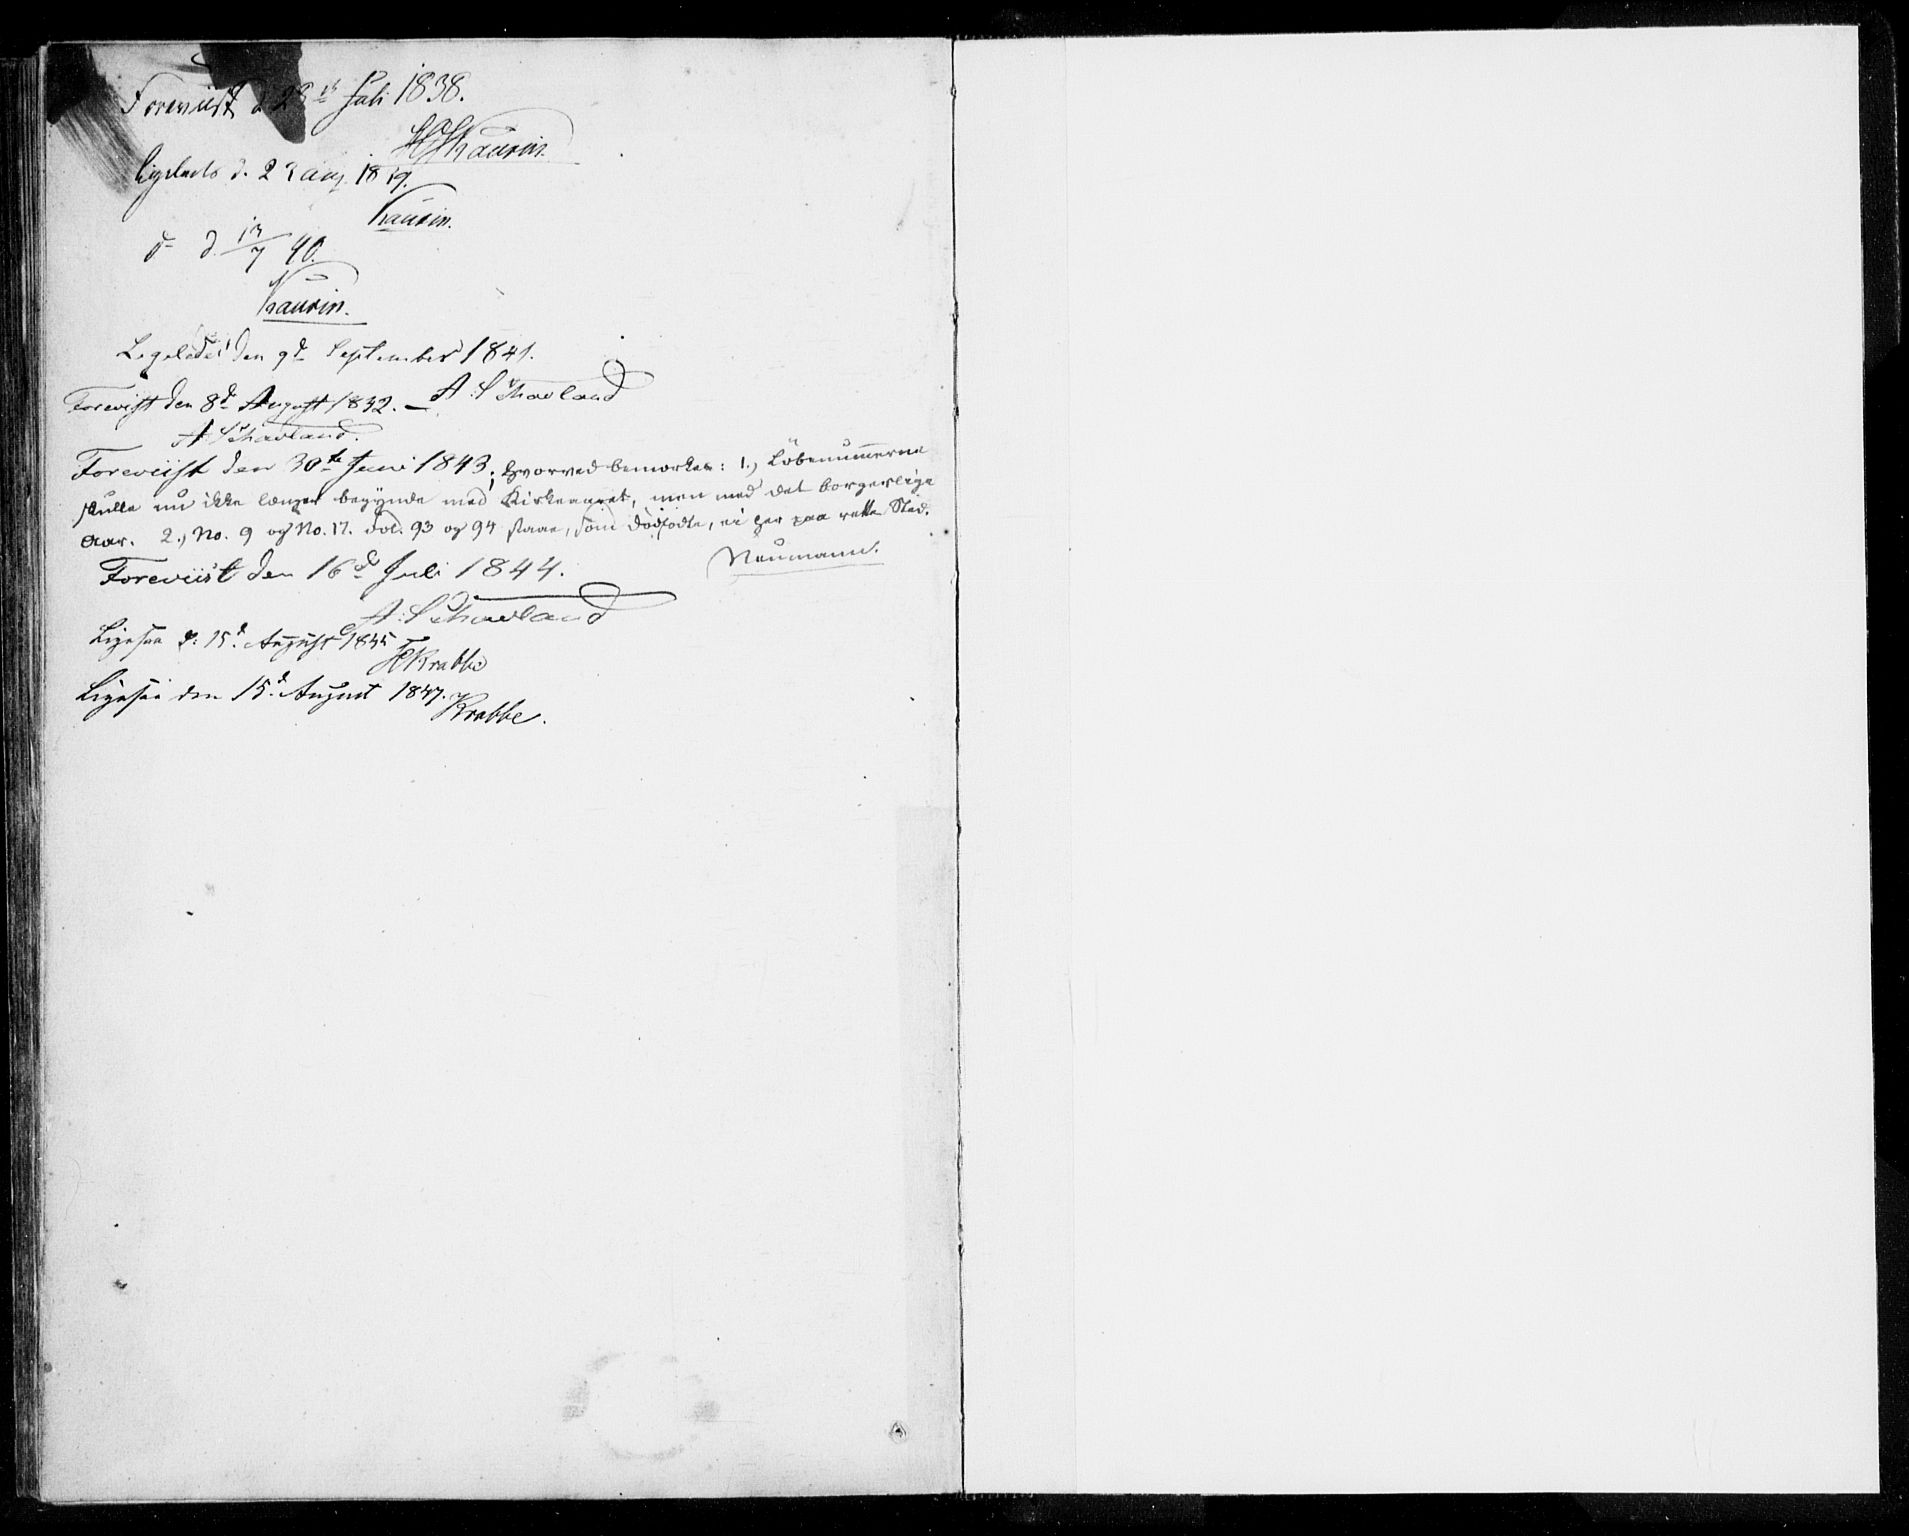 Foreviist d 23de Juli 1838.
Kaurin.
Ligeledes d. 23 Aug. 1839.
Kaurin.
do d. 13/7 40.
Kaurin.
Ligeledes den 9de September 1841.
A. Schavland
Forevist den 8de August 1842. —
A. Schavland.
Foreviist den 30te Juni 1843; hvorved bemærkes: 1., Löbenummerne
skulle nu ikke længer begynde med Kirkeaaret, men med det borgerlige
Aar. 2., No. 9 og No. 17. Fol. 93 og 94 staae, som dödfödte, ei her paa rette Sted.
Neumann.
Foreviist den 16de Juli 1844.
A. Schavland
Ligesaa d: 15de August 1845
Krabbe
Ligesaa den 15de August 1847.
Krabbe.